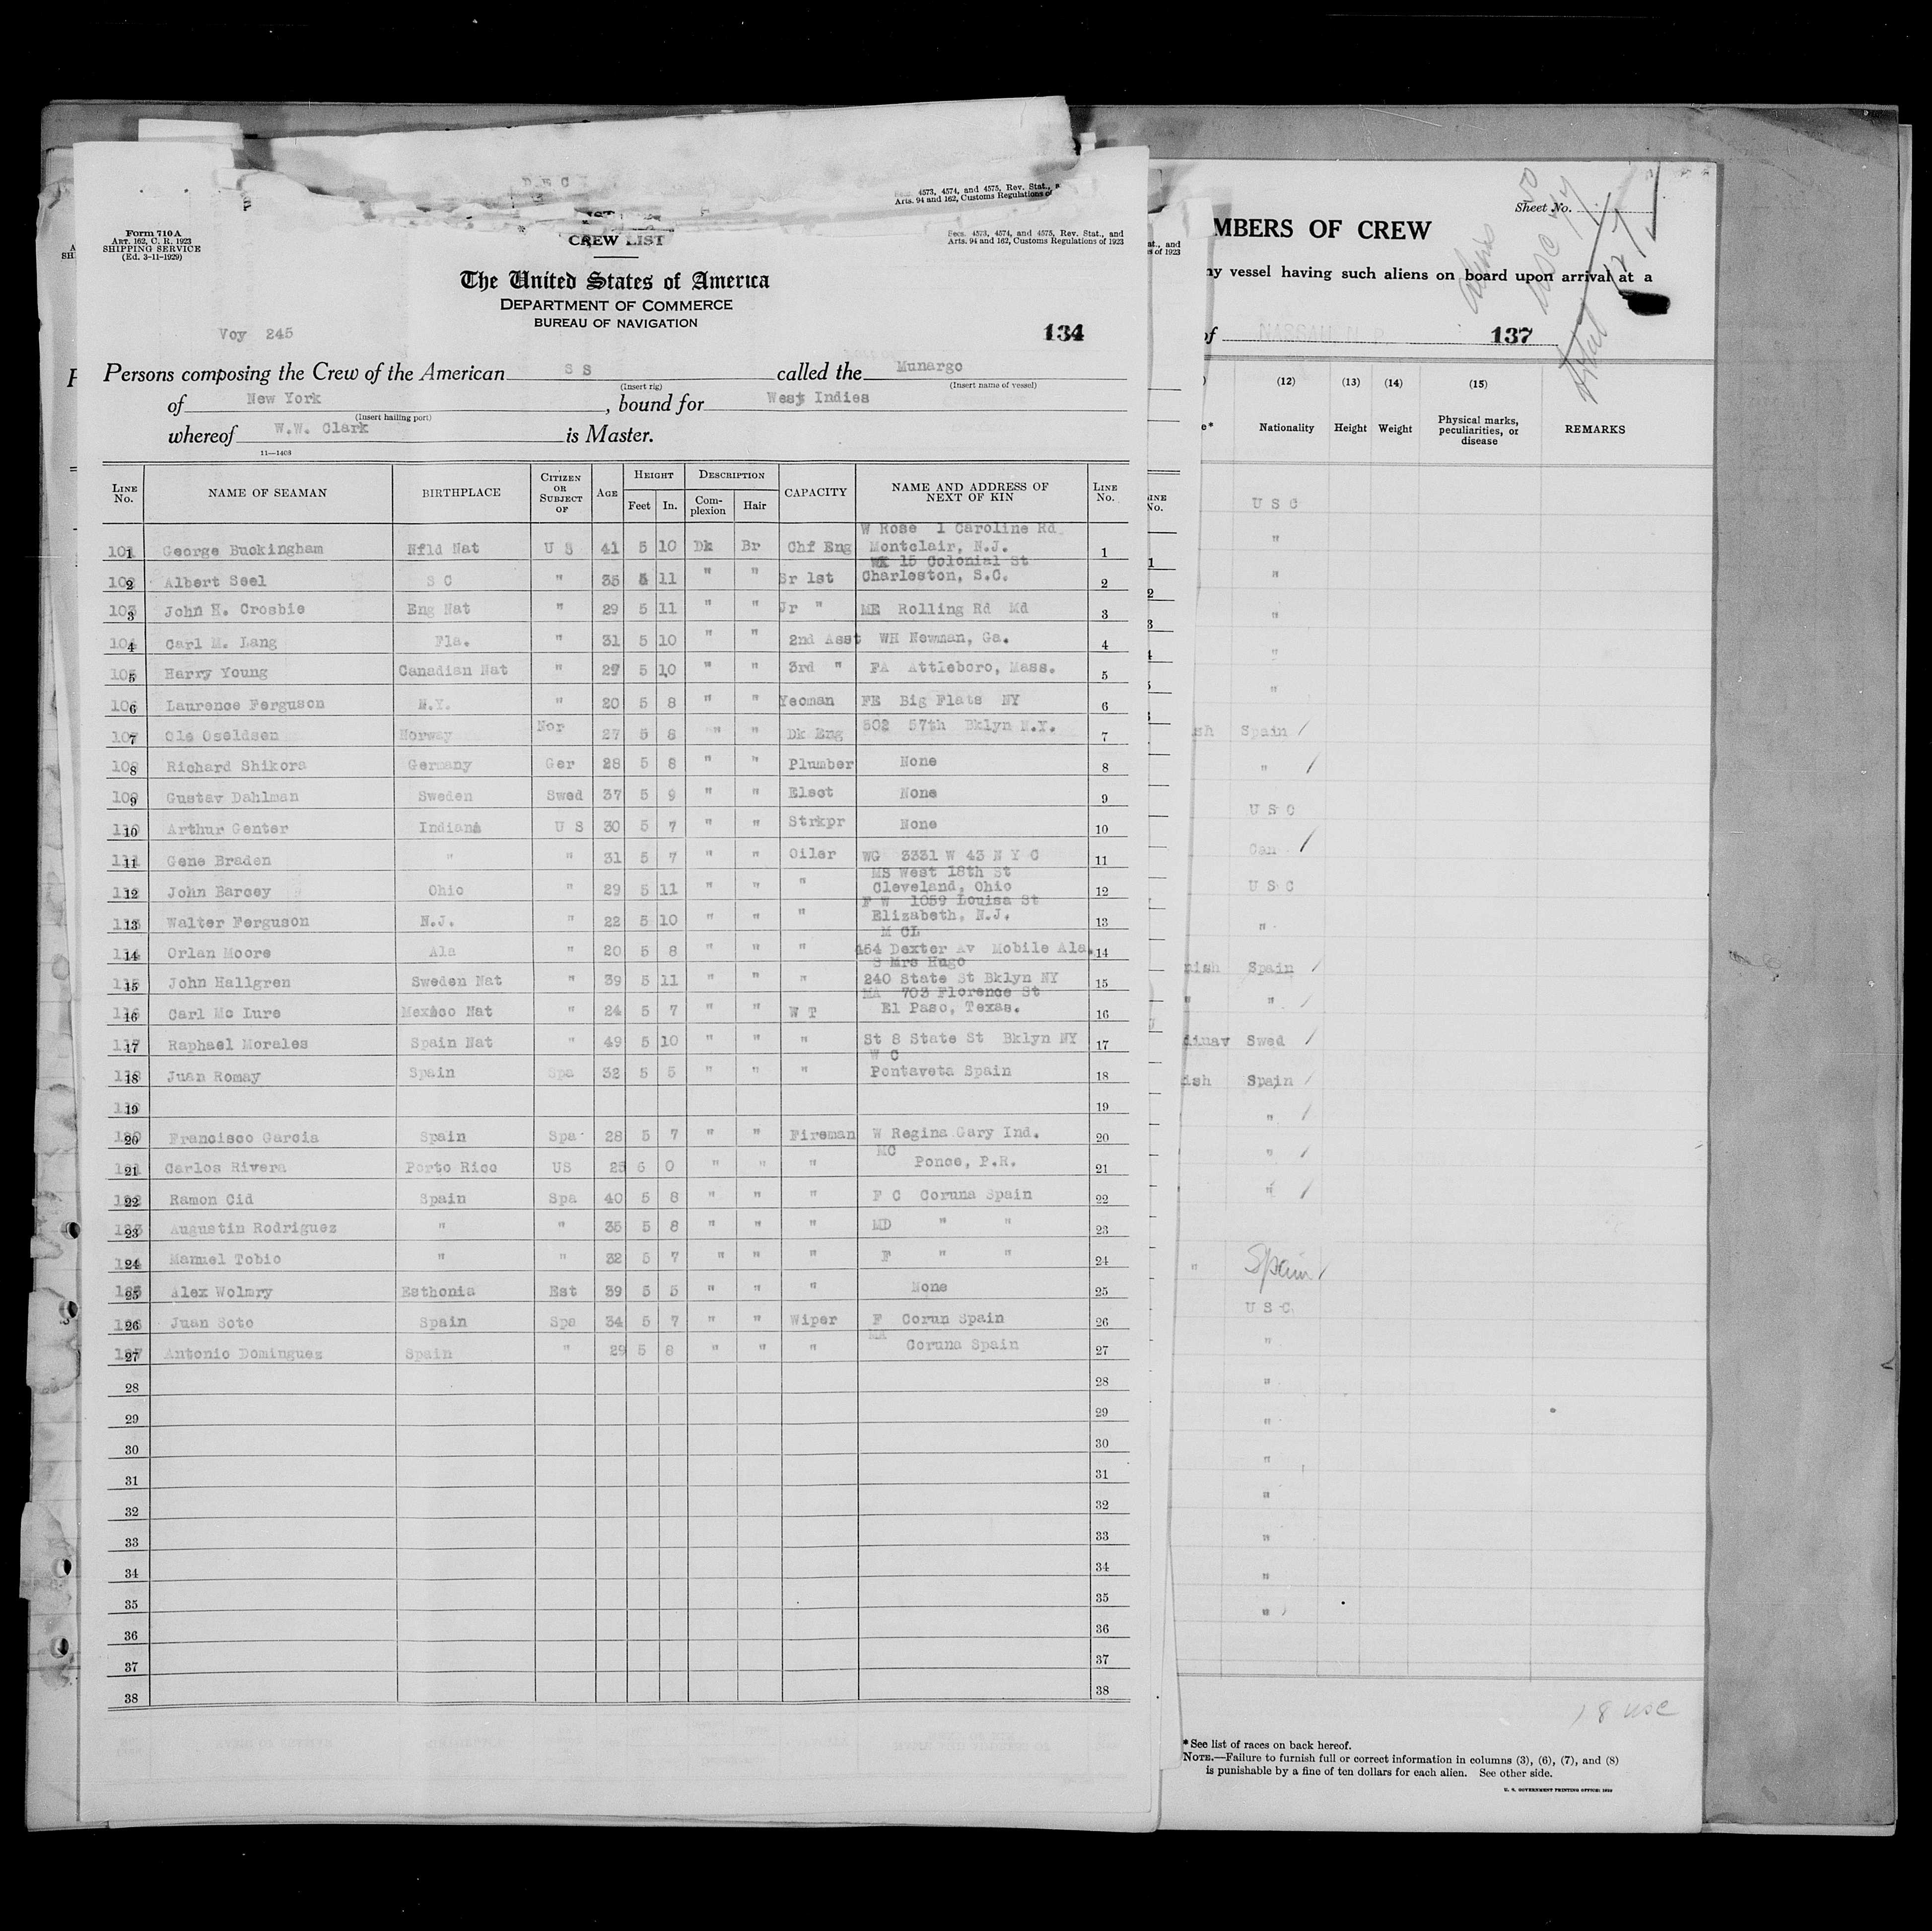 DEC
Secs. 4573, 4574, and 4575, Rev. Stat.,
Arts. 94 and 162, Customs Regulations of
Form 710A
ART. 162, C. R. 1923
SHIPPING SERVICE
(Ed. 3-11-1929)
CREW LIST
Secs. 4573, 4574, and 4575, Rev. Stat., and
Arts. 94 and 162, Customs Regulations of 1923
The United States of America
DEPARTMENT OF COMMERCE
BUREAU OF NAVIGATION
Voy 245
134
Persons composing the Crew of the American S S called the Munargo
(Insert rig) (Insert name of vessel)
of New York, bound for West Indies
(Insert hailing port)
whereof W.W. Clark is Master.
11—1403
LINE No. NAME OF SEAMAN BIRTHPLACE CITIZEN OR SUBJECT OF AGE HEIGHT Feet In. DESCRIPTION Complexion Hair CAPACITY NAME AND ADDRESS OF NEXT OF KIN LINE No.
W Rose 1 Caroline Rd
101 1 George Buckingham Nfld Nat U S 41 5 10 Dk Br Chf Eng Montclair, N.J. 1
15 Colonial St
102 2 Albert Seel S C " 35 5 11 " " Sr 1st Charleston, S.C. 2
103 3 John H. Crosbie Eng Nat " 29 5 11 " " Jr " ME Rolling Rd Md 3
104 4 Carl M. Lang Fla. " 31 5 10 " " 2nd Asst WH Newman, Ga. 4
105 5 Harry Young Canadian Nat " 29 5 10 " " 3rd " FA Attleboro, Mass. 5
106 6 Laurence Ferguson N.Y. " 20 5 8 " " Yeoman FE Big Flats NY 6
107 7 Ole Oseldsen Norway Nor 27 5 8 " " Dk Eng 502 57th Bklyn N.Y. 7
108 8 Richard Shikora Germany Ger 28 5 8 " " Plumber None 8
109 9 Gustav Dahlman Sweden Swed 37 5 9 " " Elect None 9
110 10 Arthur Genter Indiana U S 30 5 7 " " Strkpr None 10
111 11 Gene Braden " " 31 5 7 " " Oiler WG 3331 W 43 N Y C 11
MS West 18th St
112 12 John Barcey Ohio " 29 5 11 " " " Cleveland, Ohio 12
F W 1059 Louisa St
113 13 Walter Ferguson N.J. " 22 5 10 " " " Elizabeth, N.J. 13
M CL
114 14 Orlan Moore Ala " 20 5 8 " " " 454 Dexter Av Mobile Ala. 14
S Mrs Hugo
115 15 John Hallgren Sweden Nat " 39 5 11 " " " 240 State St Bklyn NY 15
MA 703 Florence St
116 16 Carl Mc Lure Mexico Nat " 24 5 7 " " W T El Paso, Texas. 16
117 17 Raphael Morales Spain Nat " 49 5 10 " " " St 8 State St Bklyn NY 17
W C
118 18 Juan Romay Spain Spa 32 5 5 " " " Pontaveta Spain 18
119 19 19
120 20 Francisco Garcia Spain Spa 28 5 7 " " Fireman W Regina Gary Ind. 20
MC
121 21 Carlos Rivera Porto Rico US 25 6 0 " " " Ponce, P.R. 21
122 22 Ramon Cid Spain Spa 40 5 8 " " " F C Coruna Spain 22
123 23 Augustin Rodriguez " " 35 5 8 " " " MD " " 23
124 24 Manuel Tobio " " 32 5 7 " " " F " " 24
125 25 Alex Wolmry Esthonia Est 39 5 5 " " " None 25
126 26 Juan Soto Spain Spa 34 5 7 " " Wiper F Corun Spain 26
MA
127 27 Antonio Dominguez Spain " 29 5 8 " " " Coruna Spain 27
28 28
29 29
30 30
31 31
32 32
33 33
34 34
35 35
36 36
37 37
38 38
Sheet No.
MBERS OF CREW
ny vessel having such aliens on board upon arrival at a
of NASSAU N P 137
(12) (13) (14) (15)
Nationality Height Weight Physical marks, peculiarities, or disease REMARKS
U S C
"
"
"
"
"
ish Spain /
" /
U S C
Can /
U S C
"
nish Spain /
" " /
dinav Swed /
ish Spain /
" /
" /
" /
" Spain /
U S C
"
"
"
"
"
"
"
"
18 USC
*See list of races on back hereof.
NOTE.—Failure to furnish full or correct information in columns (3), (6), (7), and (8)
is punishable by a fine of ten dollars for each alien. See other side.
U. S. GOVERNMENT PRINTING OFFICE: 1929